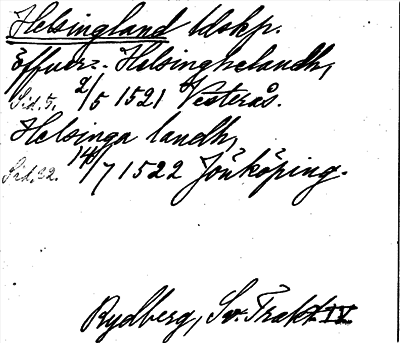 Helsingland ldskp.
Öffuer=Helsinghelandh,
Sid. 5. 2/5 1521 Vesterås.
Helsinga landh,
Sid. 32. 14/7 1522 Jönköping.
Rydberg, Sv. Trakt IV